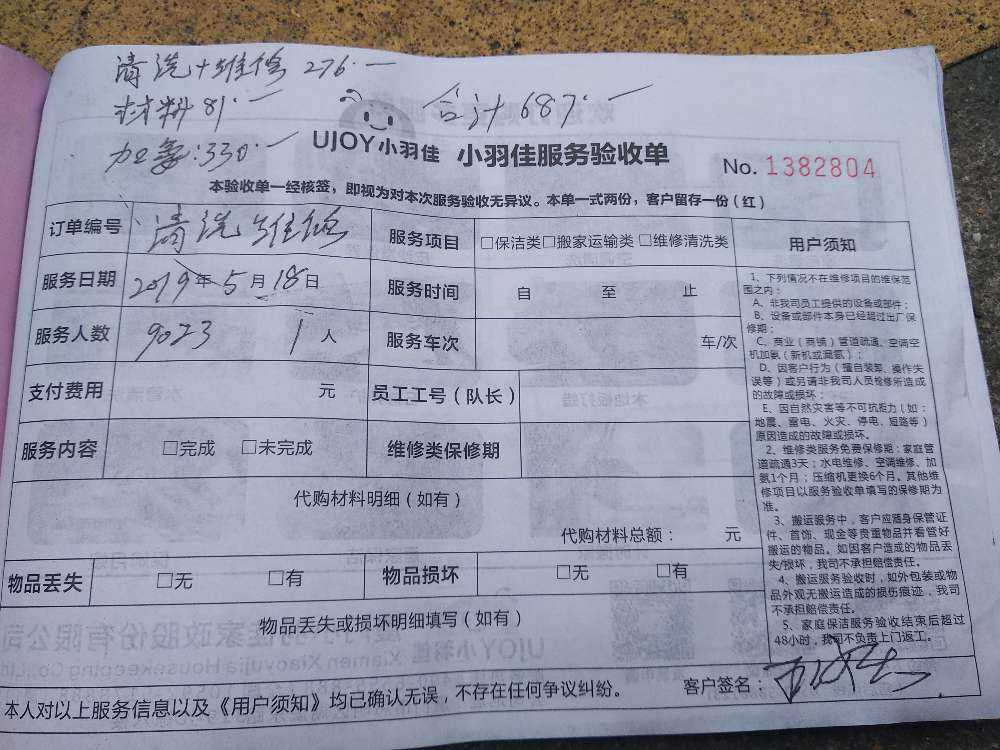 清洗+维修 276.一
材料 81.一
合计 687.一
加氨:330.一
UJOY小羽佳 小羽佳服务验收单
No. 1382804
本验收单一经核签，即视为对本次服务验收无异议。本单一式两份，客户留存一份（红）
订单编号 清洗维修 服务项目 □保洁类□搬家运输类 □维修清洗类
服务日期 2019年5月18日 服务时间 自 至 止
服务人数 9023 1人 服务车次 车/次
支付费用 元 员工工号（队长）
服务内容 □完成 □未完成 维修类保修期
代购材料明细（如有）
代购材料总额： 元
物品丢失 □无 □有 物品损坏 □无 □有
物品丢失或损坏明细填写（如有）
用户须知
1、下列情况不在维修项目的维保范
围之内：
A、非我司员工提供的设备或部件；
B、设备或部件本身已经超过出厂保
修期；
C、商业（商铺）管道疏通、空调空
机加氨（新机或漏氨）；
D、因客户行为（擅自装卸、操作失
误等）或另请非我司人员检修所造成
的故障或损坏；
E、因自然灾害等不可抗拒力（如：
地震、雷电、火灾、停电、短路等）
原因造成的故障或损坏。
2、维修类服务免费保修期：家庭管
道疏通3天；水电维修、空调维修、加
氨1个月；压缩机更换6个月。其他维
修项目以服务验收单填写的保修期为
准。
3、搬运服务中，客户应随身保管证
件、首饰、现金等贵重物品并看管好
搬运的物品。如因客户造成的物品丢
失/损坏，我司不承担赔偿责任。
4、搬运服务验收时，如外包装或物
品外观无搬运造成的损伤痕迹，我司
不承担赔偿责任。
5、家庭保洁服务验收结束后超过
48小时，我司不负责上门返工。
本人对以上服务信息以及《用户须知》均已确认无误，不存在任何争议纠纷。 客户签名：